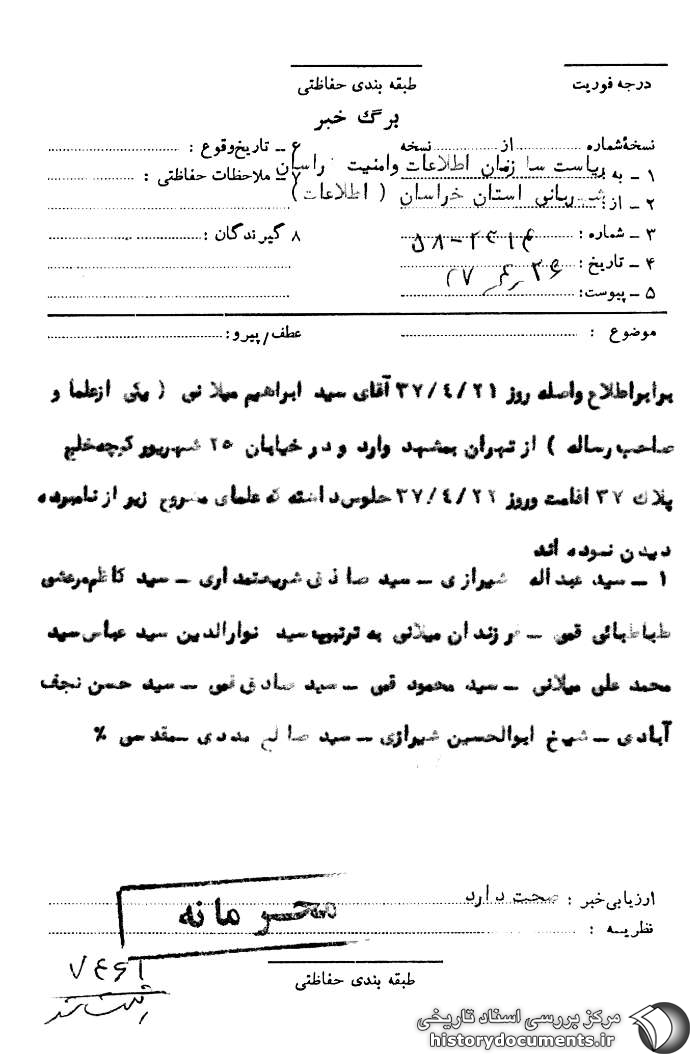 درجه فوریت
طبقه بندی حفاظتی
برگ خبر
نسخهٔ شماره از نسخه
۱ ــ به: ریاست سازمان اطلاعات وامنیت خراسان
۲ ــ از: شهربانی استان خراسان ( اطلاعات )
۳ ــ شماره:
۴ ــ تاریخ:
۵ ــ پیوست:
۶ ــ تاریخ وقوع:
۷ ــ ملاحظات حفاظتی:
۸ گیرندگان:
موضوع :
عطف/پیرو:
برابر اطلاع واصله روز ۳۷/٤/۲۱ آقای سید ابراهیم میلانی ( یکی ازعلما و
صاحب رساله ) از تهران بمشهد وارد و در خیابان ۲۵ شهریور کوچه خلیج
پلاک ۳۷ اقامت وروز ۳۷/٤/۲۲ جلوس داشته که علمای مشروح زیر از نامبرده
دیدن نموده اند
۱ ــ سید عبداله شیرازی ــ سید صادق شریعتمداری ــ سید کاظم مرعشی
طباطبائی قمی ــ فرزندان میلانی به ترتیب سید نورالدین سید عباس سید
محمد علی میلانی ــ سید محمود قمی ــ سید صادق قمی ــ سید حسن نجف
آبادی ــ شیخ ابوالحسین شیرازی ــ سید صالح مددی ــ مقدسی ٪
ارزیابی خبر : صحت دارد
نظریه :
محرمانه
طبقه بندی حفاظتی
مرکز بررسی اسناد تاریخی
historydocuments.ir